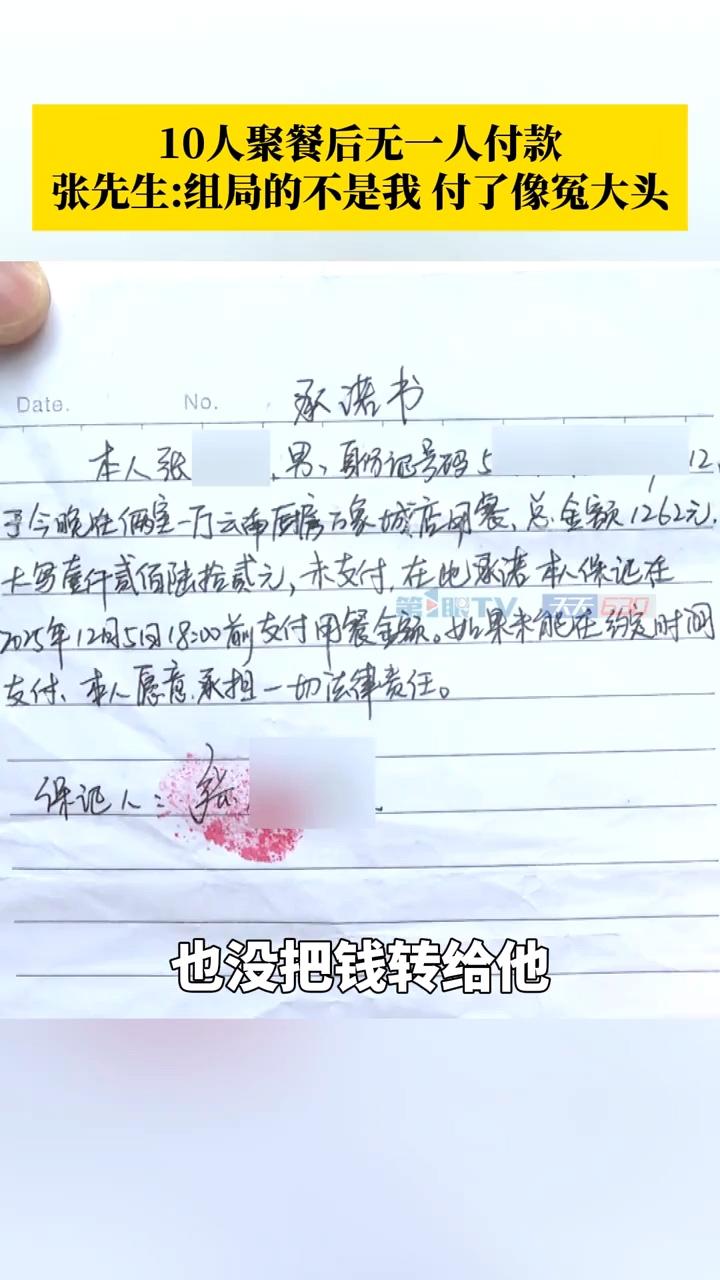 10人聚餐后无一人付款
张先生:组局的不是我 付了像冤大头
Date.
No.
承诺书
本人张 ,男、身份证号码5 12,
于今晚在俩室一厅云南厨房万象城店用餐、总金额1262元,
大写壹仟贰佰陆拾贰元,未支付,在此承诺本人保证在
第1眼TV 天天630
2025年12月5日18:00前支付用餐金额。如果未能在约定时间
支付、本人愿意承担一切法律责任。
保证人:张
也没把钱转给他